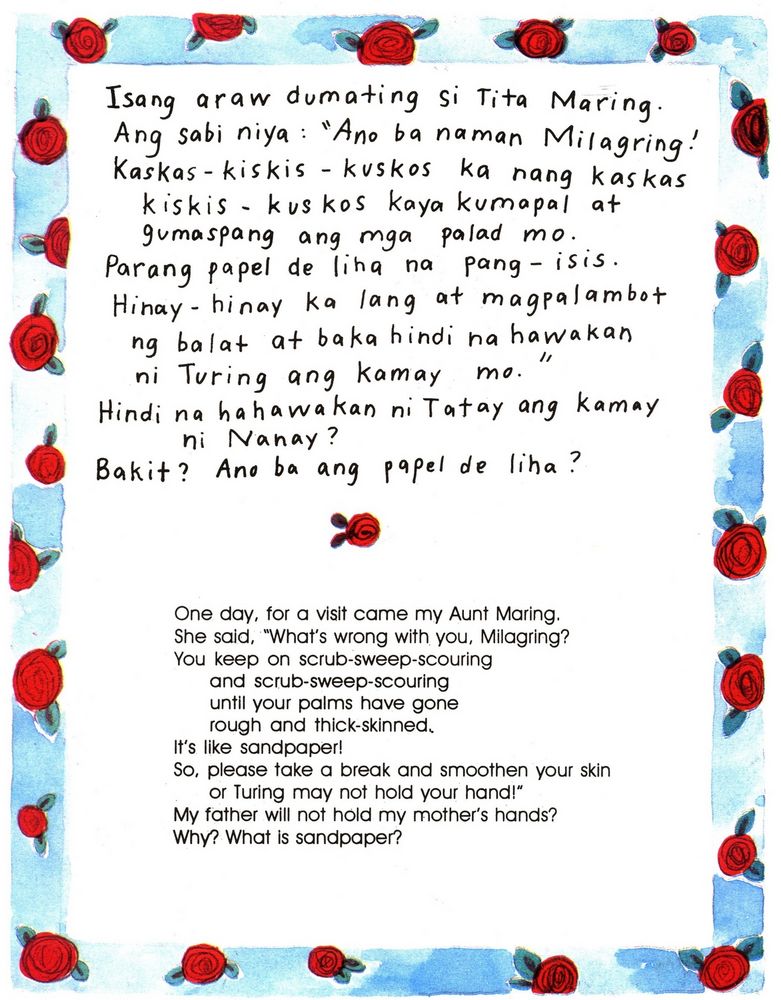 Isang araw dumating si Tita Maring.
Ang sabi niya: "Ano ba naman Milagring!
Kaskas-kiskis-kuskos ka nang kaskas
kiskis-kuskos kaya kumapal at
gumaspang ang mga palad mo.
Parang papel de liha na pang-isis.
Hinay-hinay ka lang at magpalambot
ng balat at baka hindi na hawakan
ni Turing ang kamay mo."
Hindi na hahawakan ni Tatay ang kamay
ni Nanay?
Bakit? Ano ba ang papel de liha?
One day, for a visit came my Aunt Maring.
She said, "What's wrong with you, Milagring?
You keep on scrub-sweep-scouring
and scrub-sweep-scouring
until your palms have gone
rough and thick-skinned.
It's like sandpaper!
So, please take a break and smoothen your skin
or Turing may not hold your hand!"
My father will not hold my mother's hands?
Why? What is sandpaper?